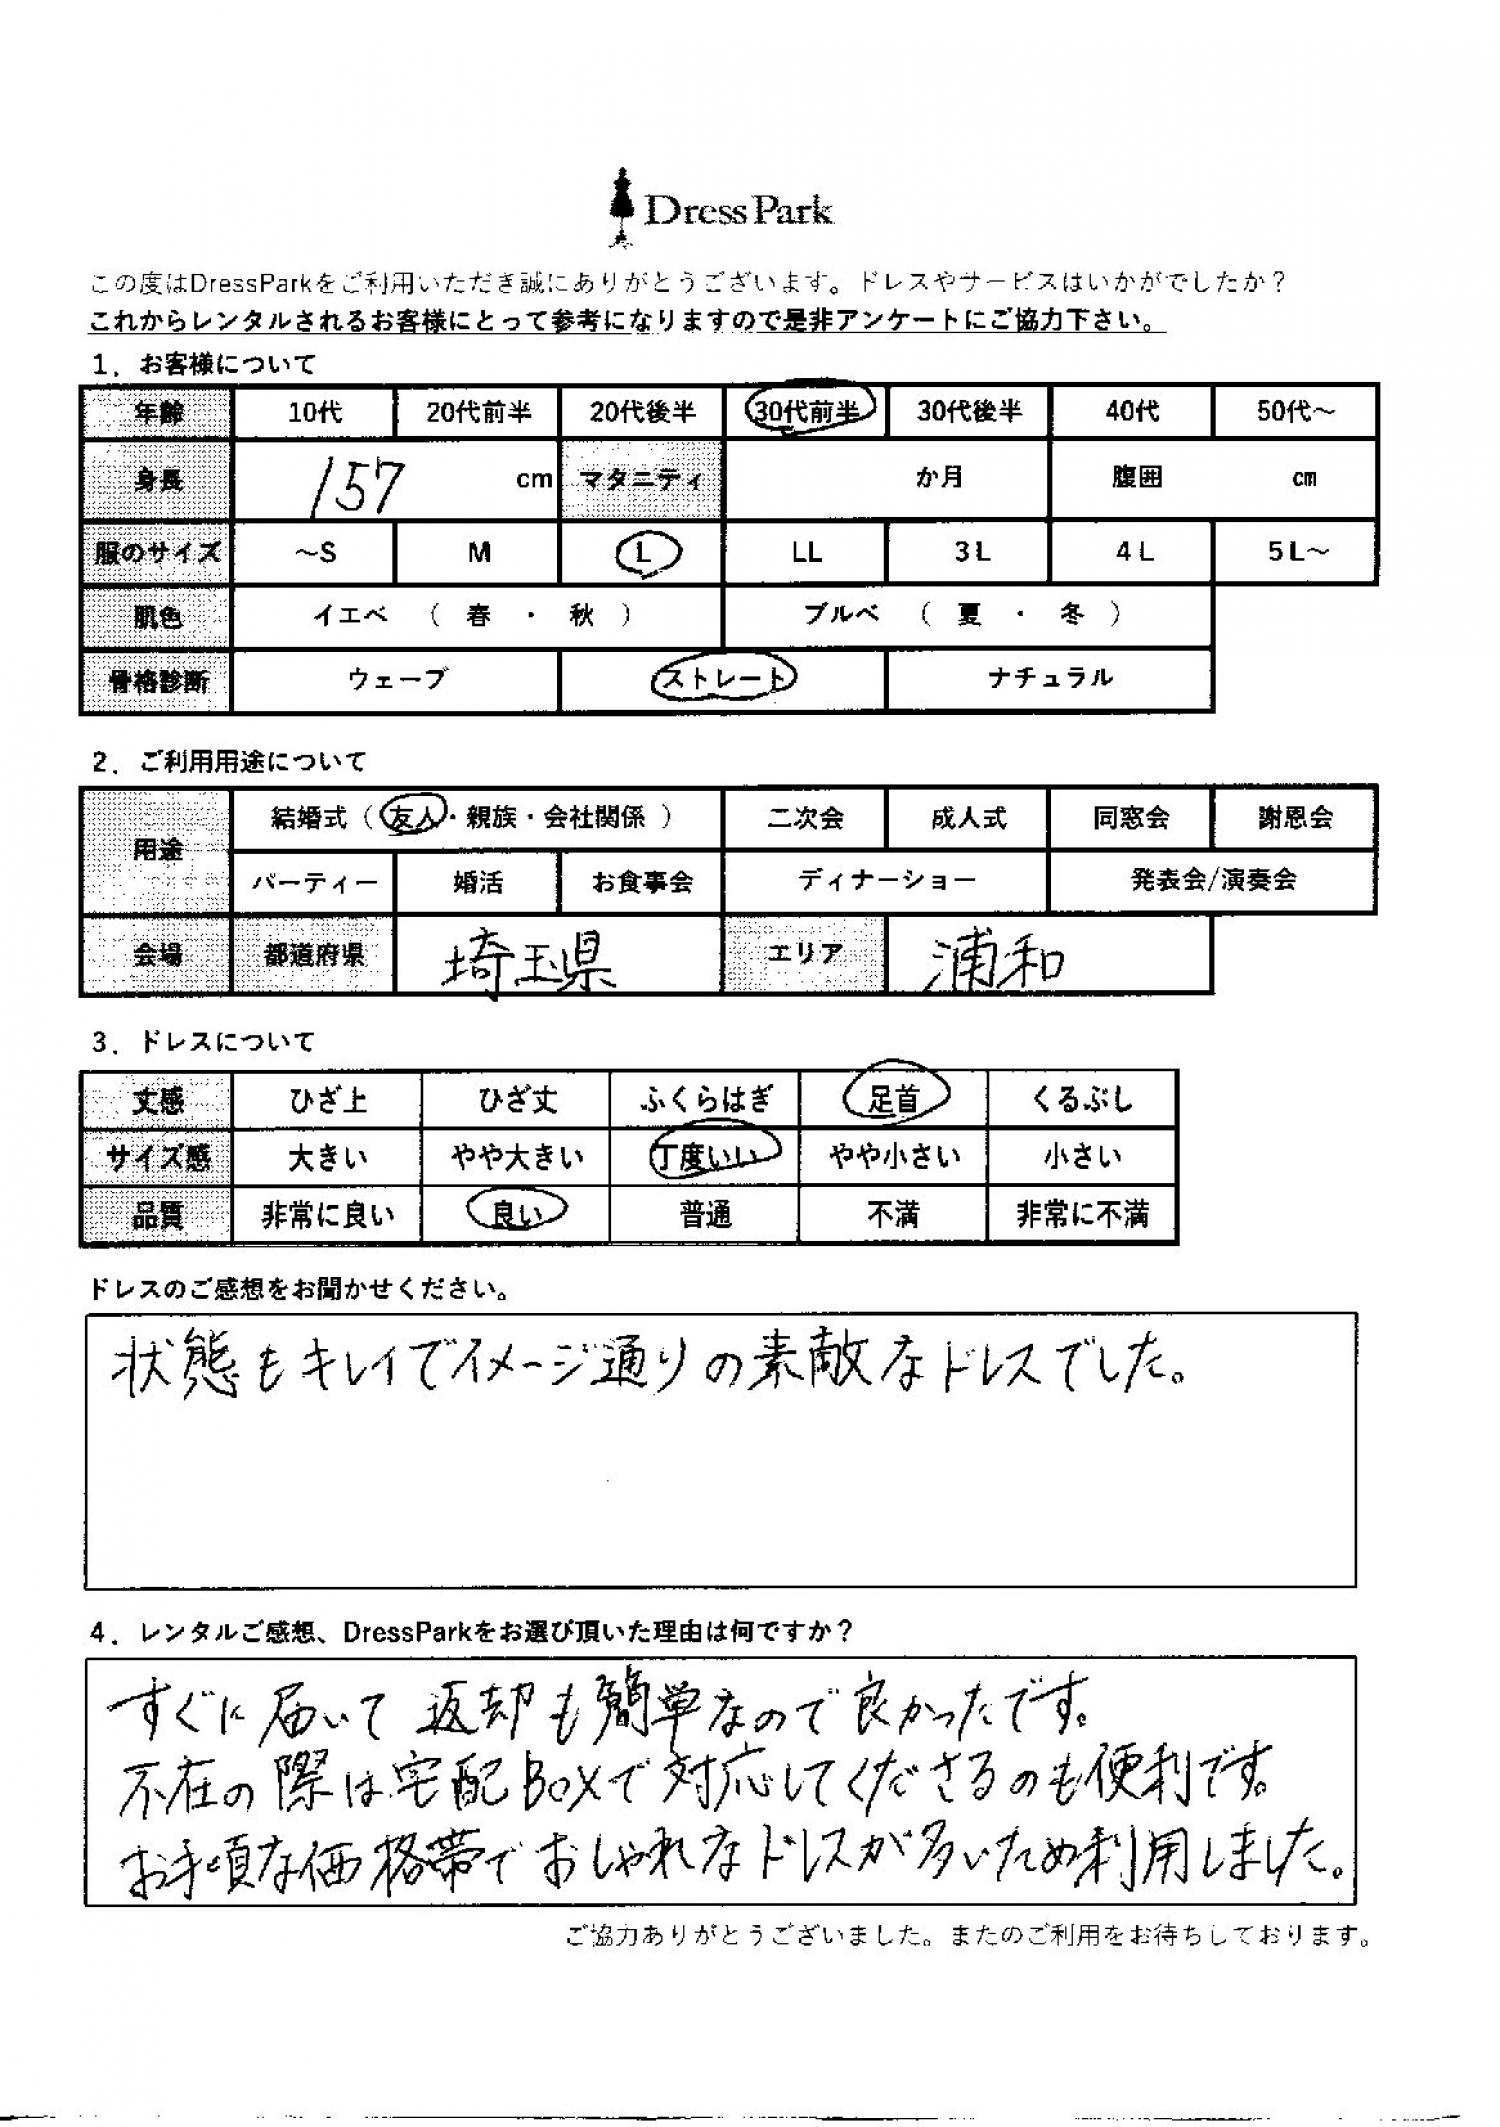 Dress Park
この度はDressParkをご利用いただき誠にありがとうございます。ドレスやサービスはいかがでしたか？
これからレンタルされるお客様にとって参考になりますので是非アンケートにご協力下さい。
1．お客様について
年齢 10代 20代前半 20代後半 30代前半 30代後半 40代 50代～
身長 157 cm マタニティ か月 腹囲 cm
服のサイズ ～S M L LL 3L 4L 5L～
肌色 イエベ （ 春 ・ 秋 ） ブルベ （ 夏 ・ 冬 ）
骨格診断 ウェーブ ストレート ナチュラル
2．ご利用用途について
用途 結婚式（ 友人・親族・会社関係 ） 二次会 成人式 同窓会 謝恩会
パーティー 婚活 お食事会 ディナーショー 発表会/演奏会
会場 都道府県 埼玉県 エリア 浦和
3．ドレスについて
丈感 ひざ上 ひざ丈 ふくらはぎ 足首 くるぶし
サイズ感 大きい やや大きい 丁度いい やや小さい 小さい
品質 非常に良い 良い 普通 不満 非常に不満
ドレスのご感想をお聞かせください。
状態もキレイでイメージ通りの素敵なドレスでした。
4．レンタルご感想、DressParkをお選び頂いた理由は何ですか？
すぐに届いて返却も簡単なので良かったです。
不在の際は宅配BOXで対応してくださるのも便利です。
お手頃な価格帯でおしゃれなドレスが多いため利用しました。
ご協力ありがとうございました。またのご利用をお待ちしております。